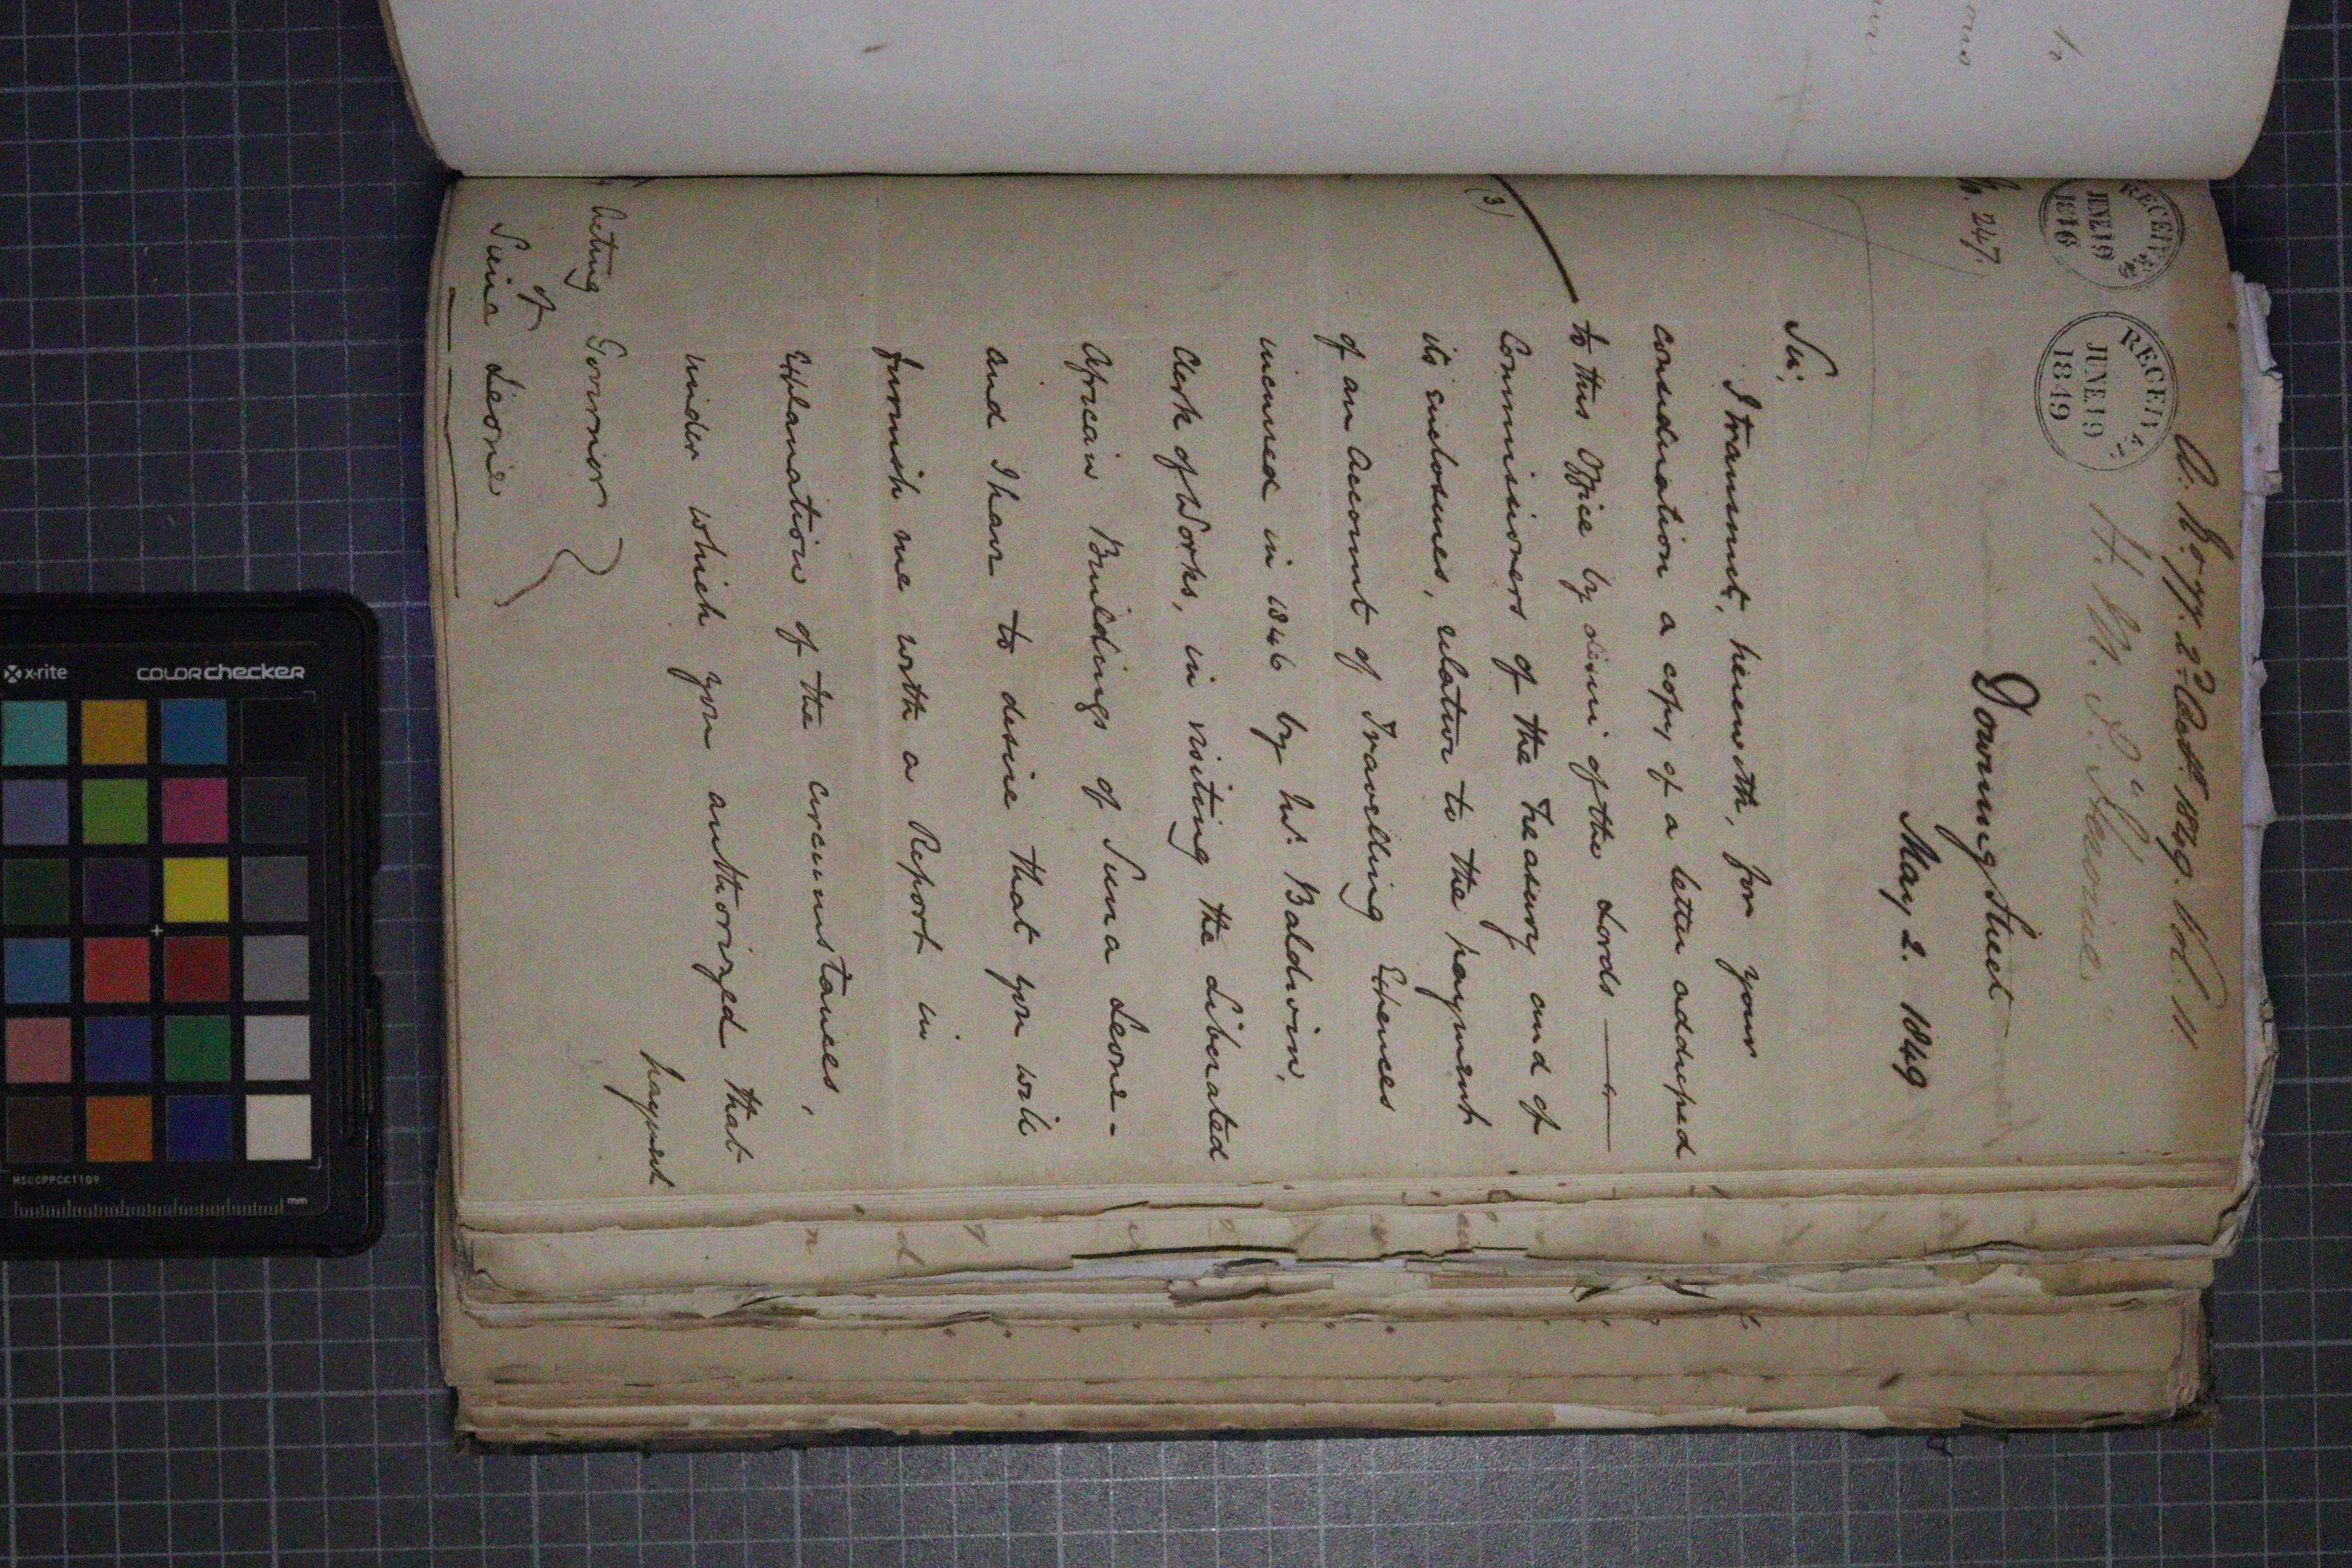 A. h. o yy. 2d Oct. 1849. Vol. 11
RECEIVED
JUNE 19
1846
RECEIVED
JUNE 19
1849
247.
Downing Street
May 2. 1849
Sir,
I transmit, herewith, for your
consideration a copy of a letter addressed
to this Office by desire of the Lords
(3)
Commissioners of the Treasury and of
its enclosures, relative to the payment
of an Account of Travelling Expences
incurred in 1846 by Mr. Baldwin,
Clerk of Works, in visiting the Liberated
African Buildings of Sierra Leone -
and I have to desire that you will
furnish me with a Report in
Explanation of the circumstances,
under which you authorized that
payment
Acting Governor
of
Sierra Leone
x-rite
COLORchecker
MSCCPPCC1109
mm